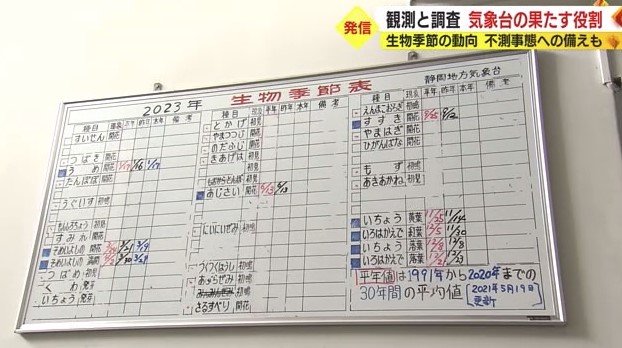 発信
観測と調査 気象台の果たす役割
生物季節の動向 不測事態への備えも
2023年 生物季節表 静岡地方気象台
種目 現象 平年 昨年 本年 備考
すいせん 開花
つばき 開花
うめ 開花
たんぽぽ 開花
うぐいす 初鳴
もんしろちょう 初見
すみれ 開花
そめいよしの 開花
そめいよしの 満開
つばめ 初見
くわ 発芽
いちょう 発芽
種目 現象 平年 昨年 本年 備考
とかげ 初見
やまつつじ 開花
のだふじ 開花
きあげは 初見
しおからとんぼ 初見
あじさい 開花 6/13
にいにいぜみ 初鳴
つくつくほうし 初鳴
あぶらぜみ 初鳴
みんみんぜみ 初鳴
さるすべり 開花
種目 現象 平年 昨年 本年 備考
えんまこおろぎ 初鳴
すすき 開花
やまはぎ 開花
ひがんばな 開花
もず 初鳴
あきあかね 初見
いちょう 黄葉
いろはかえで 紅葉
いちょう 落葉
いろはかえで 落葉
平年値は1991年から2020年までの
30年間の平均値
2021年5月19日
更新